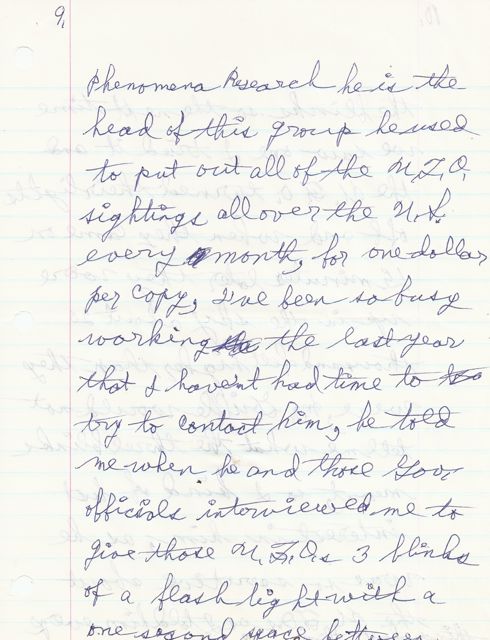 9,
phenomena Research he is the
head of this group he used
to put out all of the U.F.O.
sightings all over the U.S.
every month, for one dollar
per copy, I've been so busy
working the last year
that I havent had time to
try to contact him, he told
me when he and those Gov
officials interviewed me to
give those U.F.O.s 3 blinks
of a flash light with a
one second space between